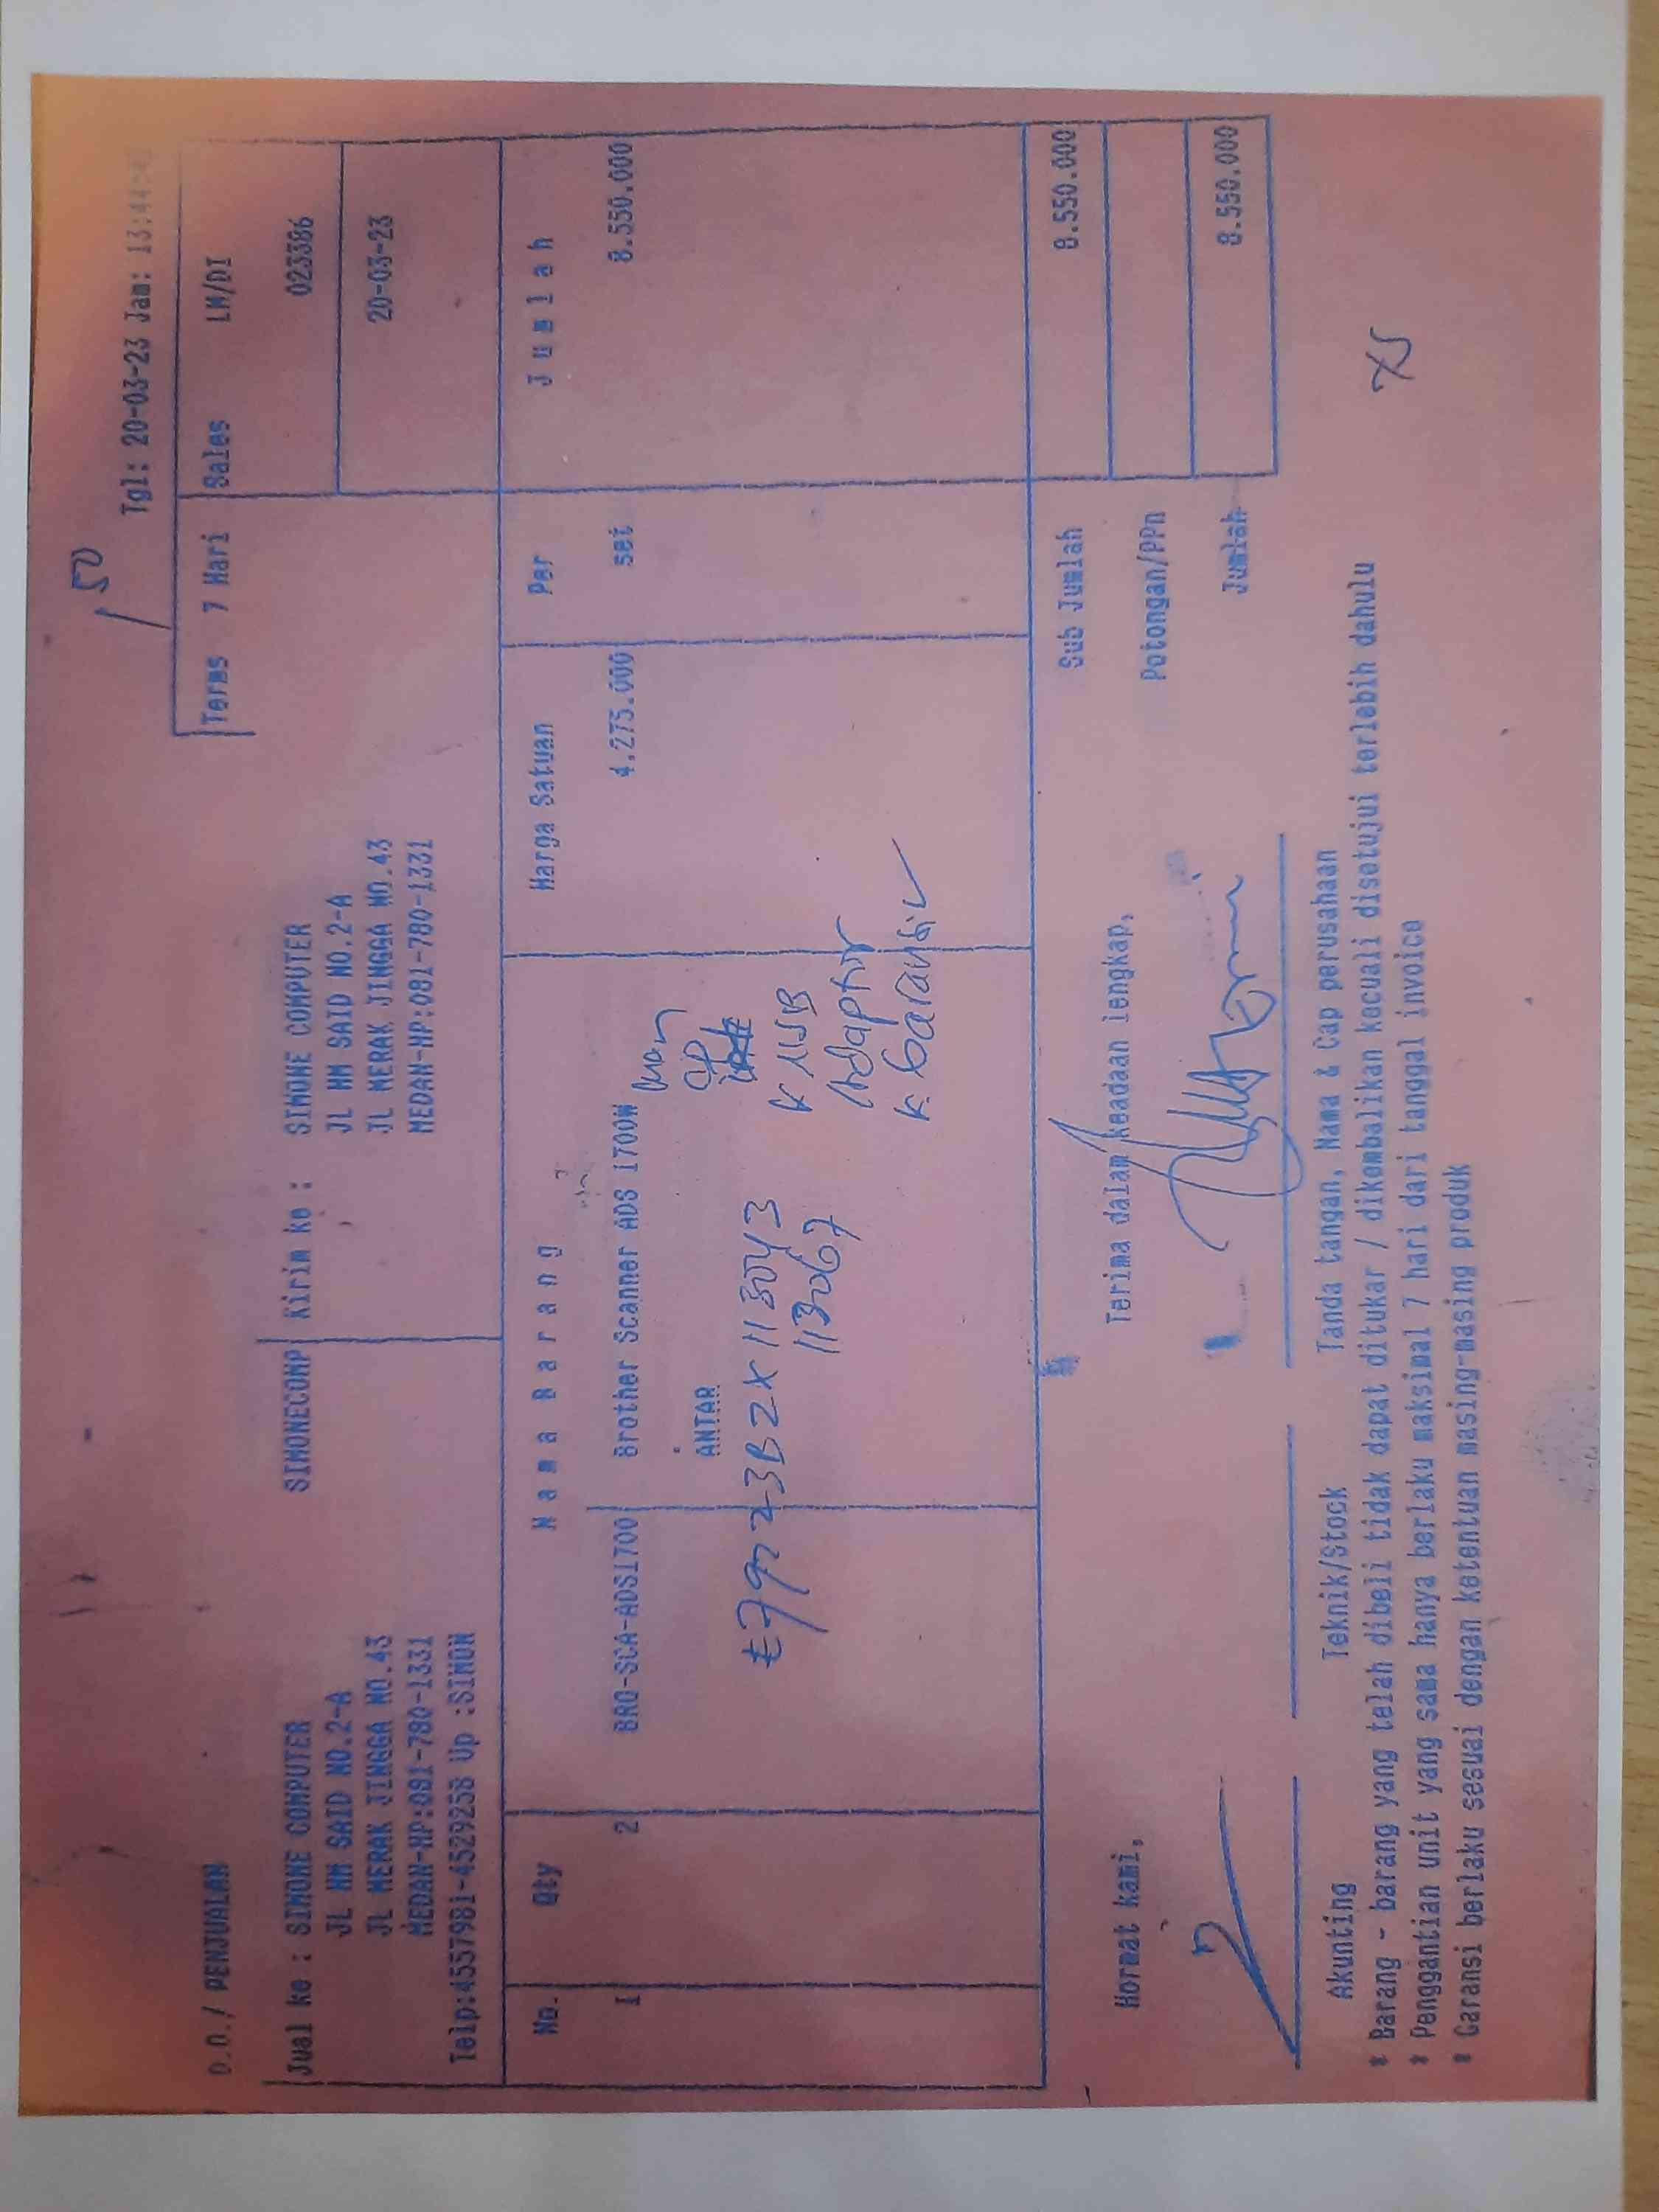 150
Tgl: 20-03-23 Jam: 13:44
D.O./ PENJUALAN
Terms 7 Hari Sales LM/DI
Jual ke : SIMONE COMPUTER SIMONECOMP Kirim ke : SIMONE COMPUTER 023386
JL HM SAID NO.2-A JL HM SAID NO.2-A
JL MERAK JINGGA NO.43 JL MERAK JINGGA NO.43 20-03-23
MEDAN-HP:081-780-1331 MEDAN-HP:081-780-1331
Telp:4557981-4529258 Up :SIMON
No. Qty Nama Barang Harga Satuan Per Jumlah
1 2 BRO-SCA-ADS1700 Brother Scanner ADS 1700W 4.275.000 set 8.550.000
ANTAR
E79723B2X113043
113067
K USB
Adaptor
K. Garansi
Sub Jumlah 8.550.000
Hormat kami, Terima dalam keadaan lengkap,
Potongan/PPn
Jumlah 8.550.000
Akunting Teknik/Stock Tanda tangan, Nama & Cap perusahaan
* Barang - barang yang telah dibeli tidak dapat ditukar / dikembalikan kecuali disetujui terlebih dahulu
* Penggantian unit yang sama hanya berlaku maksimal 7 hari dari tanggal invoice
* Garansi berlaku sesuai dengan ketentuan masing-masing produk